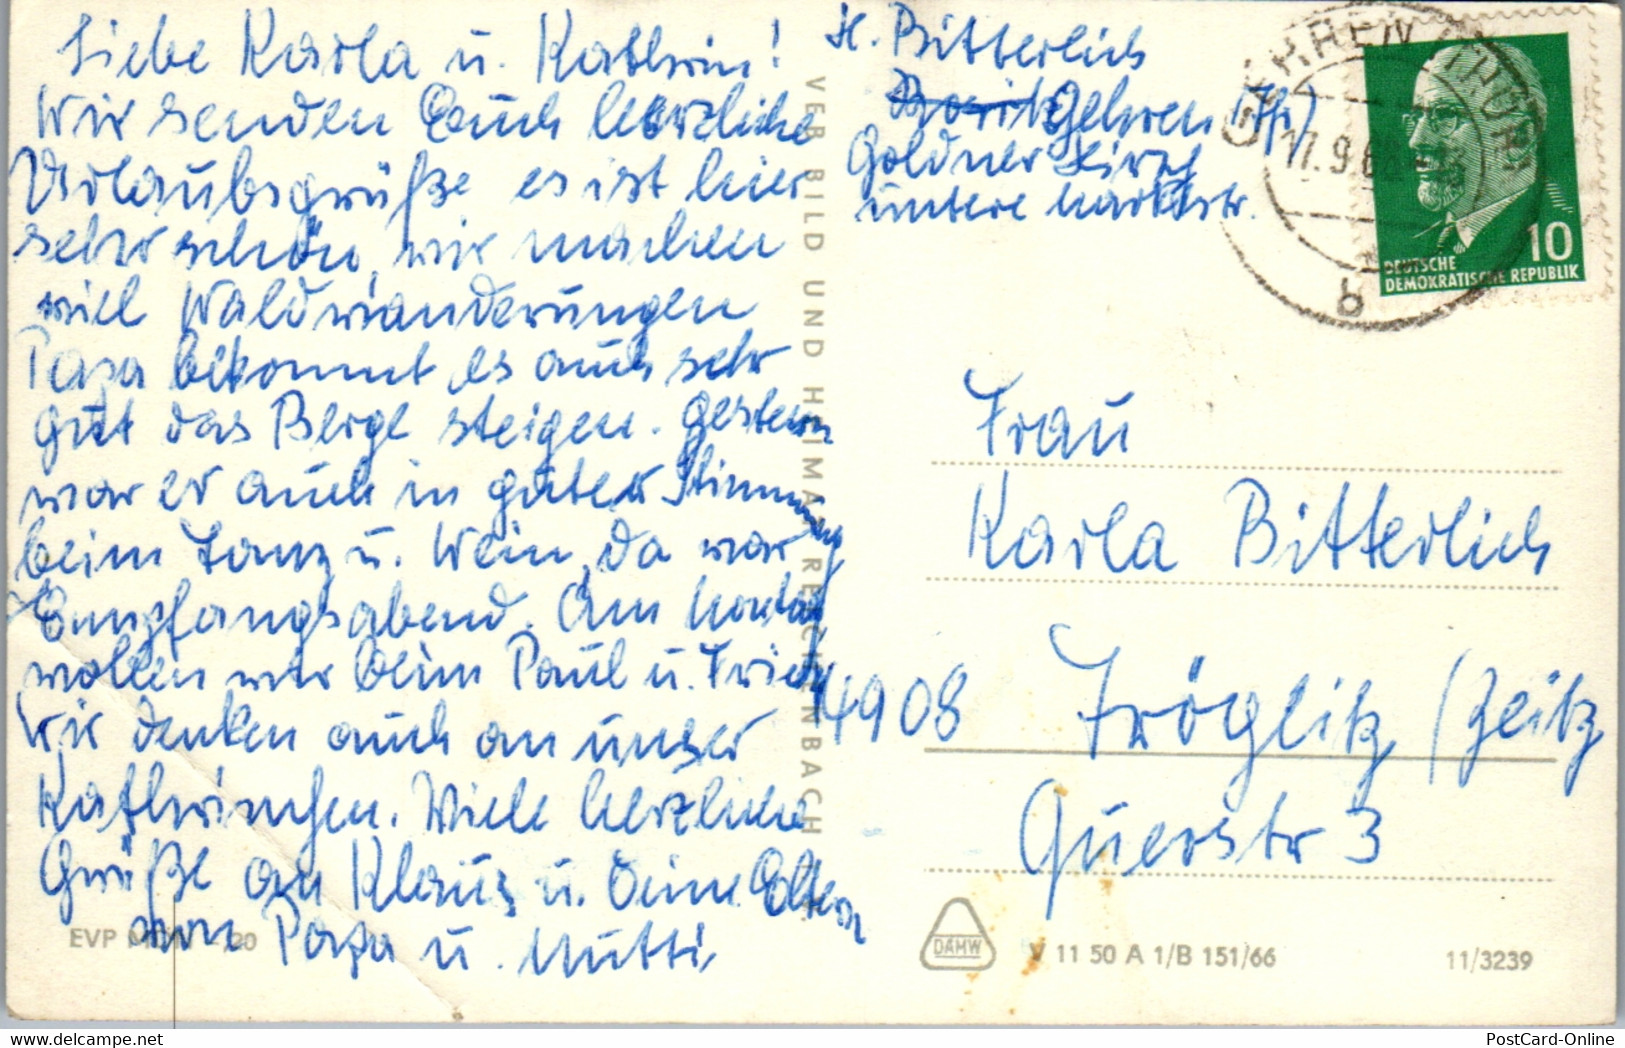 Liebe Karla u. Kathrin!
Wir senden Euch herzliche
Urlaubsgrüße es ist hier
sehr schön, wir machen
viel Waldwanderungen
Papa bekommt es auch sehr
gut das Berge steigen. Gestern
war er auch in guter Stimmung
beim Tanz u. Wein, da war
Empfangsabend. Am Montag
wollen wir beim Paul u. Friedy
Wir denken auch an unser
Kathrinchen. Viele herzliche
Grüße an Klaus u. Deine Eltern
von Papa u. Mutti,
EVP MDN -,20
VEB BILD UND HEIMAT REICHENBACH
H. Bitterlich
Gehren (Th)
Goldner Hirsch
untere Marktstr.
GEHREN (THÜR)
17.9.68
b
10
DEUTSCHE
DEMOKRATISCHE REPUBLIK
Frau
Karla Bitterlich
4908 Tröglitz (Zeitz
Querstr 3
DAMW
V 11 50 A 1/B 151/66
11/3239
www.delcampe.net
PostCard-Online